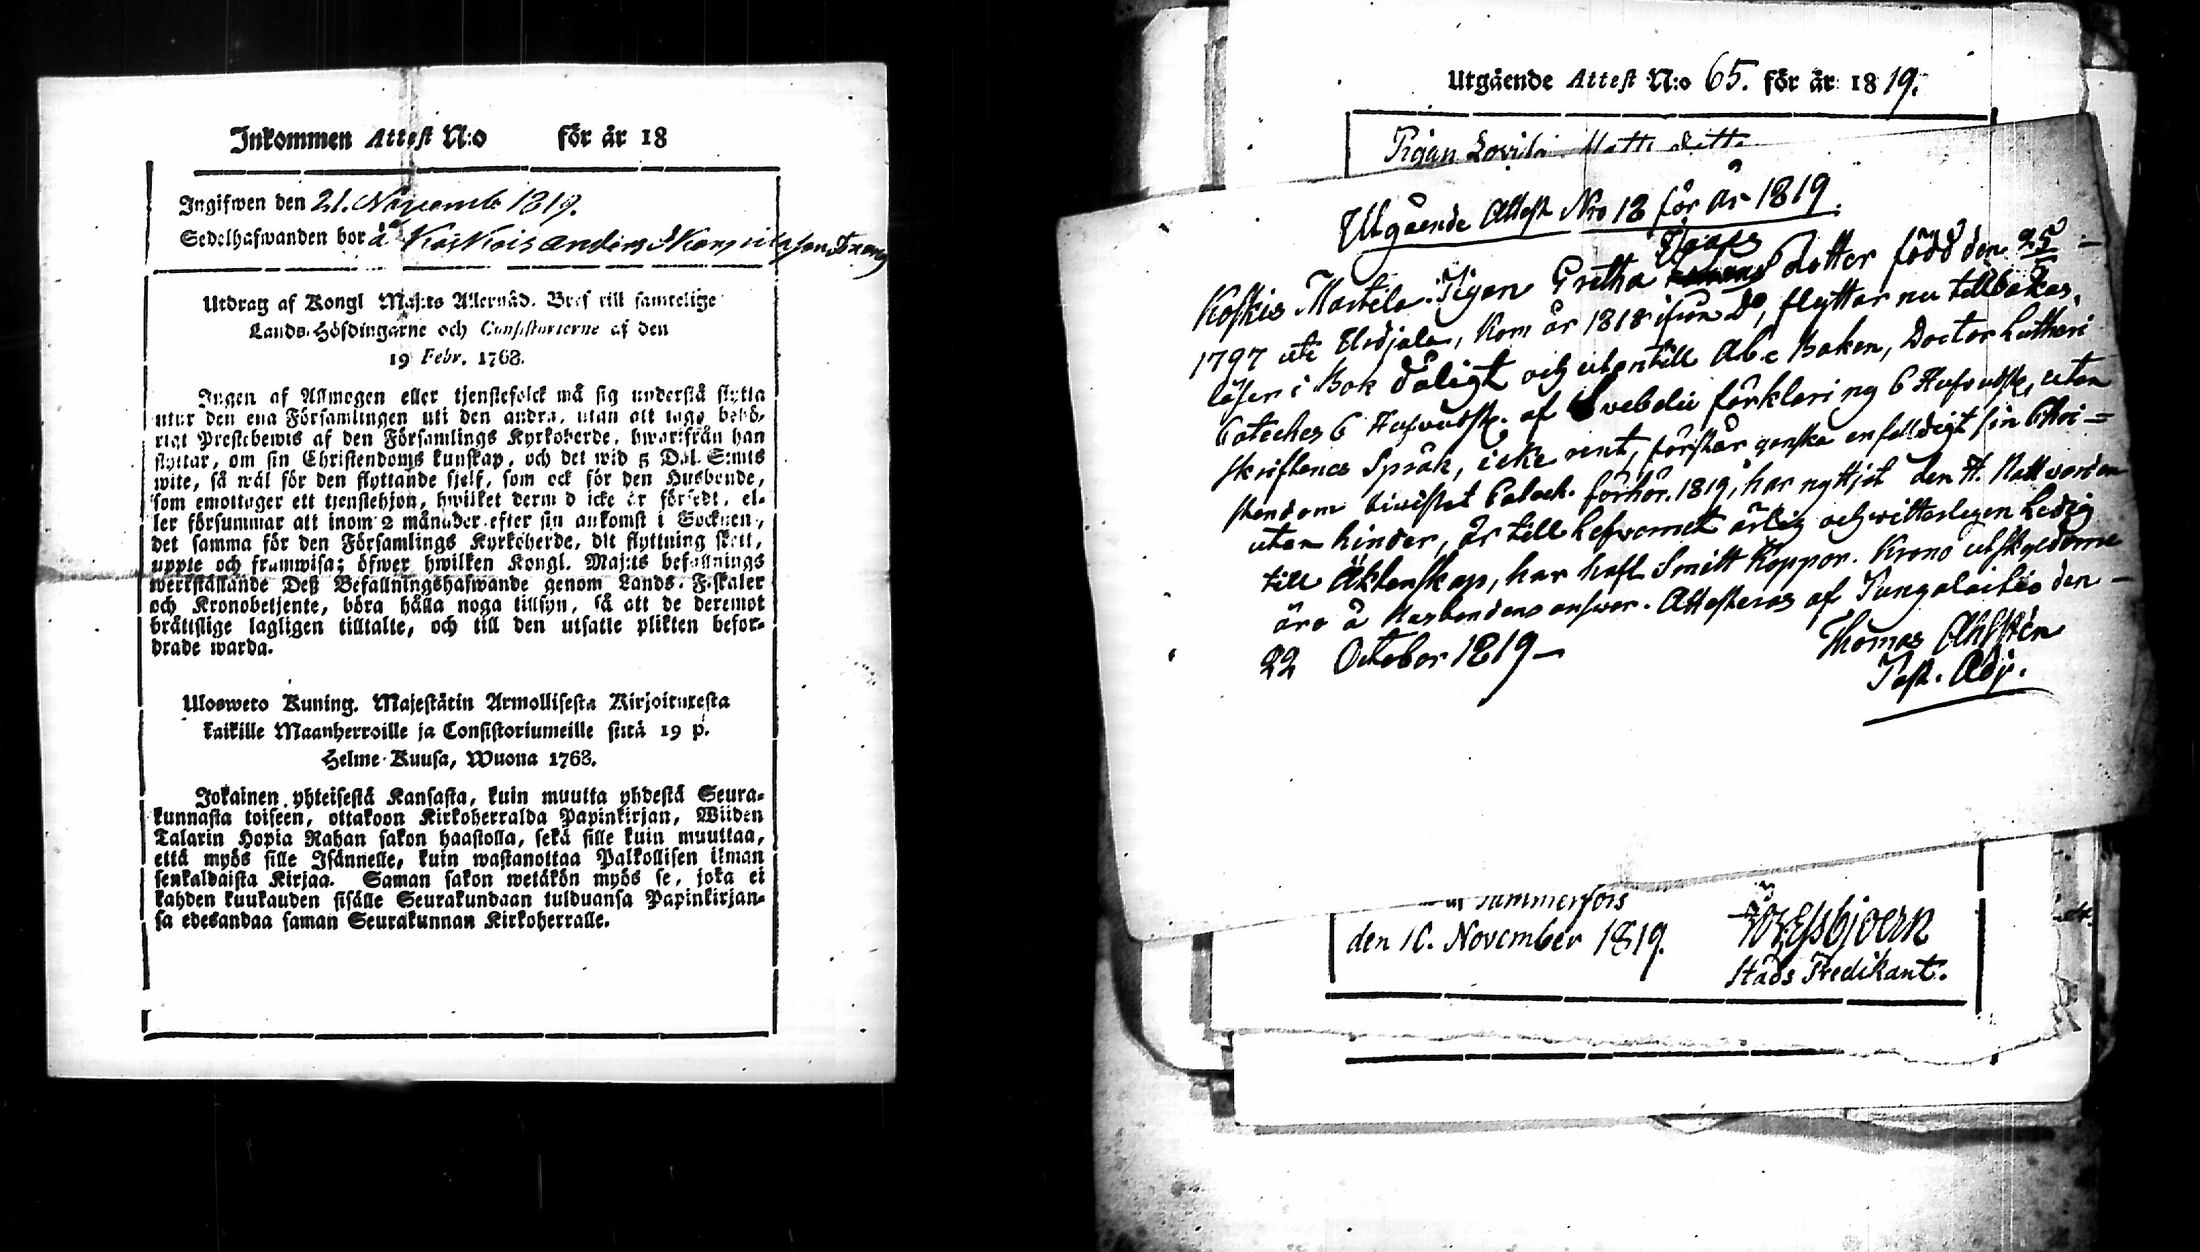 Inkommen Attest N:o för år 18
Ingifwen den 21. Novemb 1819.
Sedelhafwanden bor å
Utdrag af Kongl Maj:ts Allernåd. Bref till samtelige
Lands-Höfdingarne och Consistorierne af den
19 Febr. 1763.
Ingen af Allmogen eller tjenstefolck må sig understå flytta
utur den ena Församlingen uti den andra, utan att taga behö-
rigt Prestebewis af den Församlings Kyrkoherde, hwarifrån han
flyttar, om sin Christendoms kunskap, och det wid 5 Dal. S:mts
wite, så wäl för den flyttande sjelf, som ock för den Husbonde,
som emottager ett tjenstehjon, hwilket dermed icke är försedt, el-
ler försummar att inom 2 månader efter sin ankomst i Socknen,
det samma för den Församlings Kyrkoherde, dit flyttning skett,
uppte och framwisa; öfwer hwilken Kongl. Maj:ts befallnings
werkställande Deß Befallningshafwande genom Lands-Fiskaler
och Kronobetjente, böra hålla noga tillsyn, så att de deremot
bråttslige lagligen tilltalte, och till den utsatte plikten befor-
drade warda.
Ulosweto Kuning. Majestätin Armollisesta Kirjoituresta
kaikille Maanherroille ja Consistoriumeille siitä 19 p.
Helme-Kuusa, Wuona 1763.
Jokainen yhteisestä Kansasta, kuin muutta yhdestä Seura-
kunnasta toiseen, ottakoon Kirkoherralda Papinkirjan, Wiiden
Talarin Hopia Rahan sakon haastolla, sekä sille kuin muuttaa,
että myös sille Isännelle, kuin wastanottaa Palkollisen ilman
senkaldaista Kirjaa. Saman sakon wetäkön myös se, joka ei
kahden kuukauden sisälle Seurakundaan tulduansa Papinkirjan-
sa edesandaa saman Seurakunnan Kirkoherralle.
Utgående Attest N:o 65. för år 1819.
Pigan Lovisa Matts dott.
Utgående Attest Nro 12 för år 1819.
Koskis Martela Pigan Gretha dotter född den 25
1797 uti Urdjala, kom år 1818 ifrån Do, flyttar nu tillbakas,
läser i Bok dåligt och utantill Abc Boken, Doctor Lutheri
Cateches 6 Hufvudst. af Svebelii förklaring 6 Hufvudst, utan
skriftenes Språk, icke rent, förstår ganska enfaldigt sin Chri-
stendom bivistat Catech. förhör. 1819, har nyttjat den H. Nattvarden
utan hinder, är till lefvernet ärlig och vitterligen Ledig
till Äktenskap, har haft Smitt Koppor. Krono utskylderne
äro å Husbondens answar. Attesteras af Tungalaitio den –
22 October 1819 –
Thomas Ahlstén
Past. Adj.
Tammerfors
den 10. November 1819.
Stads Predikant.